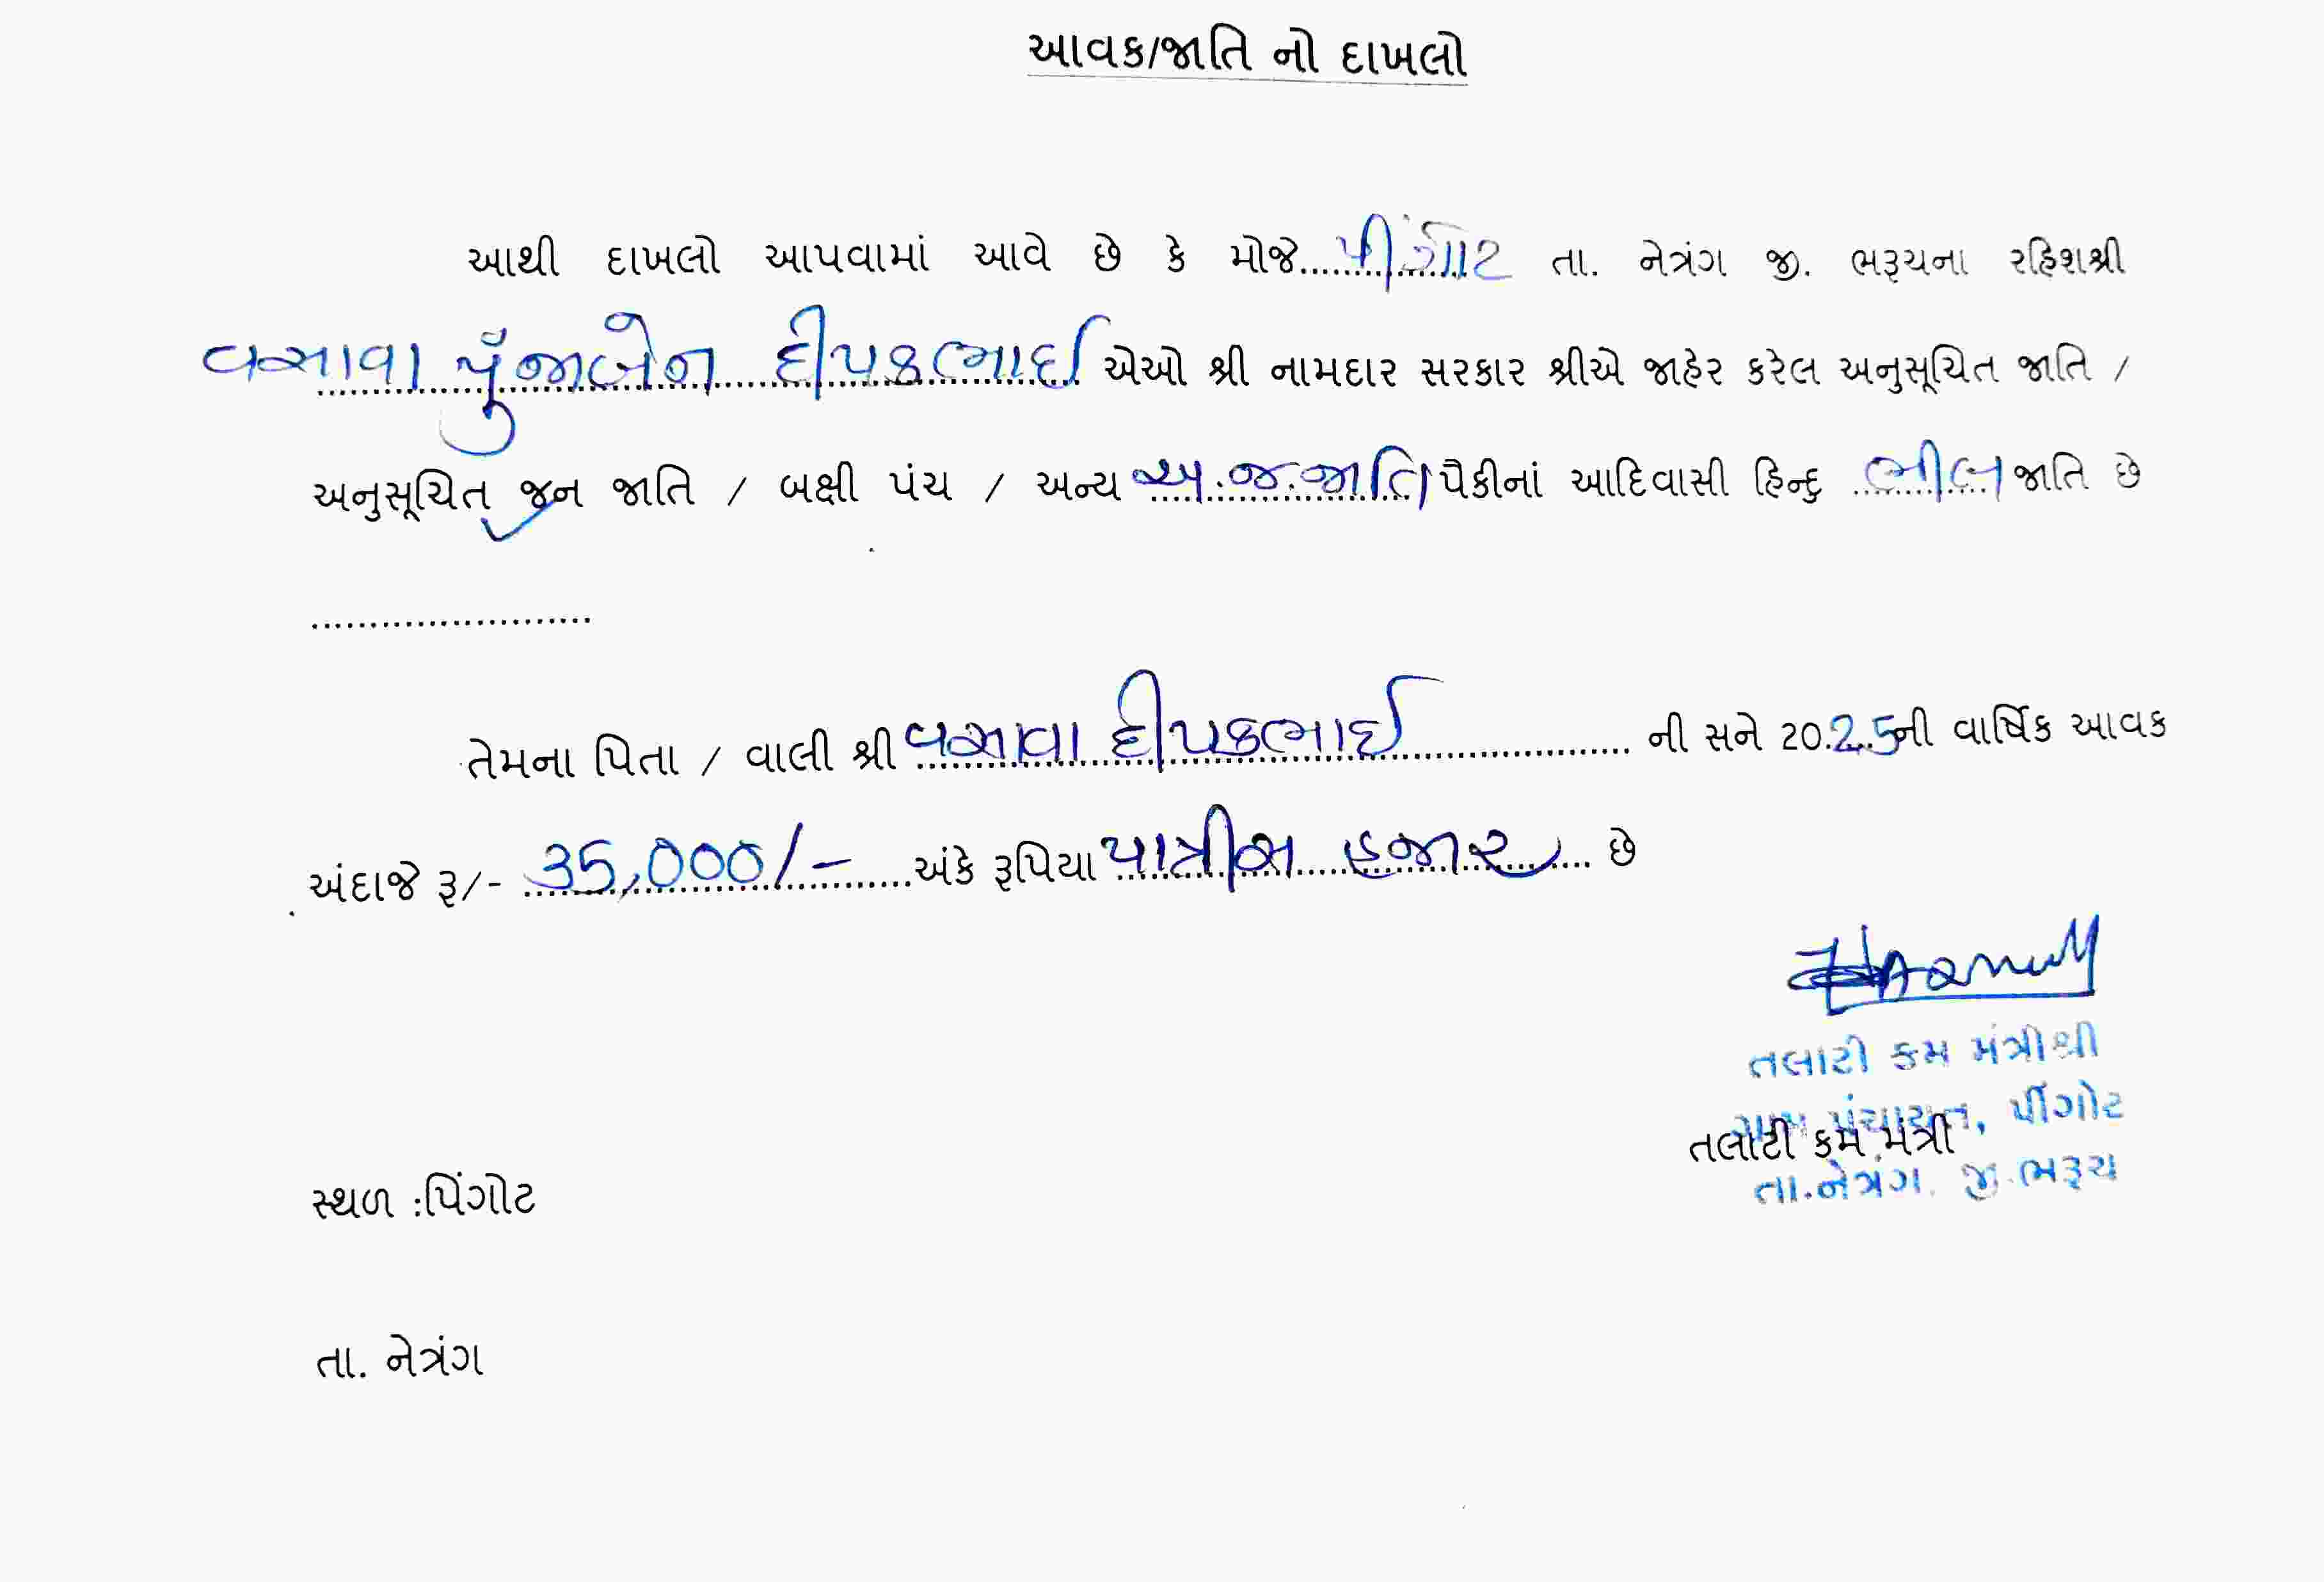 આવક/જાતિ નો દાખલો
આથી દાખલો આપવામાં આવે છે કે મોજે......પીંગોટ તા. નેત્રંગ જી. ભરૂચના રહિશશ્રી
વસાવા પુઁજાબેન દીપકભાઈ એઓ શ્રી નામદાર સરકાર શ્રીએ જાહેર કરેલ અનુસૂચિત જાતિ /
અનુસૂચિત જન જાતિ / બક્ષી પંચ / અન્ય અ.જ.જાતિ પૈકીનાં આદિવાસી હિન્દુ ભીલ જાતિ છે
........................
તેમના પિતા / વાલી શ્રી વસાવા દીપકભાઈ .................. ની સને 2025ની વાર્ષિક આવક
અંદાજે રૂ/- 35,000/- ...........અંકે રૂપિયા પાત્રીસ હજાર ..... છે
તલાટી કમ મંત્રીશ્રી
ગ્રામ પંચાયત, પીંગોટ
તલાટી કમ મંત્રી
તા.નેત્રંગ. જી.ભરૂચ
સ્થળ :પિંગોટ
તા. નેત્રંગ